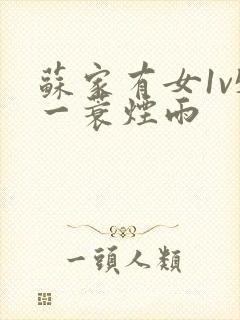 蘇家有女1v
一蓑煙雨
一頭人類